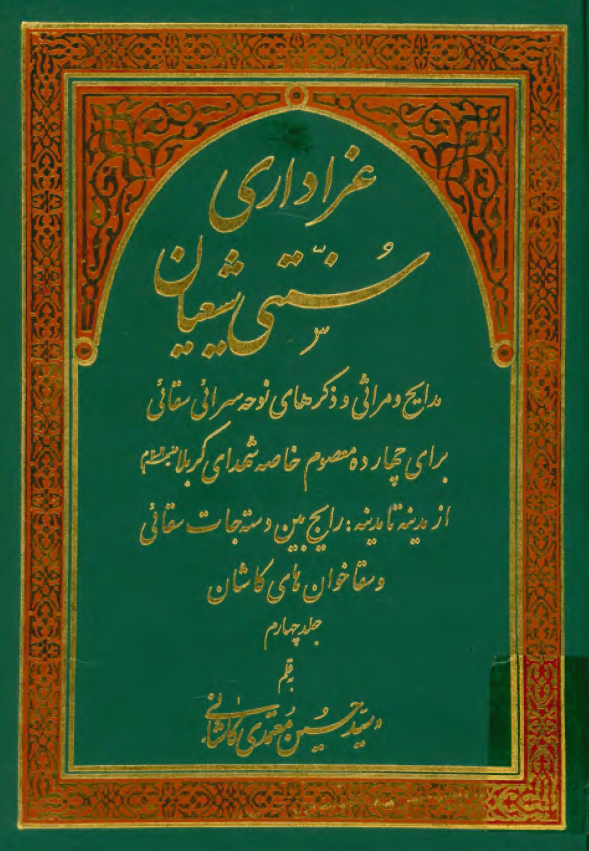 عزاداری
سُنّتی شیعیان
مدایح و مراثی و ذکرهای نوحه سرائی سقائی
برای چهارده معصوم خاصه شهدای کربلا علیهم السلام
از مدینه تا مدینه: رایج بین دسته جات سقائی
و سقاخوان های کاشان
جلد چهارم
بقلم
سیّد حسین مُعتمدی کاشانی